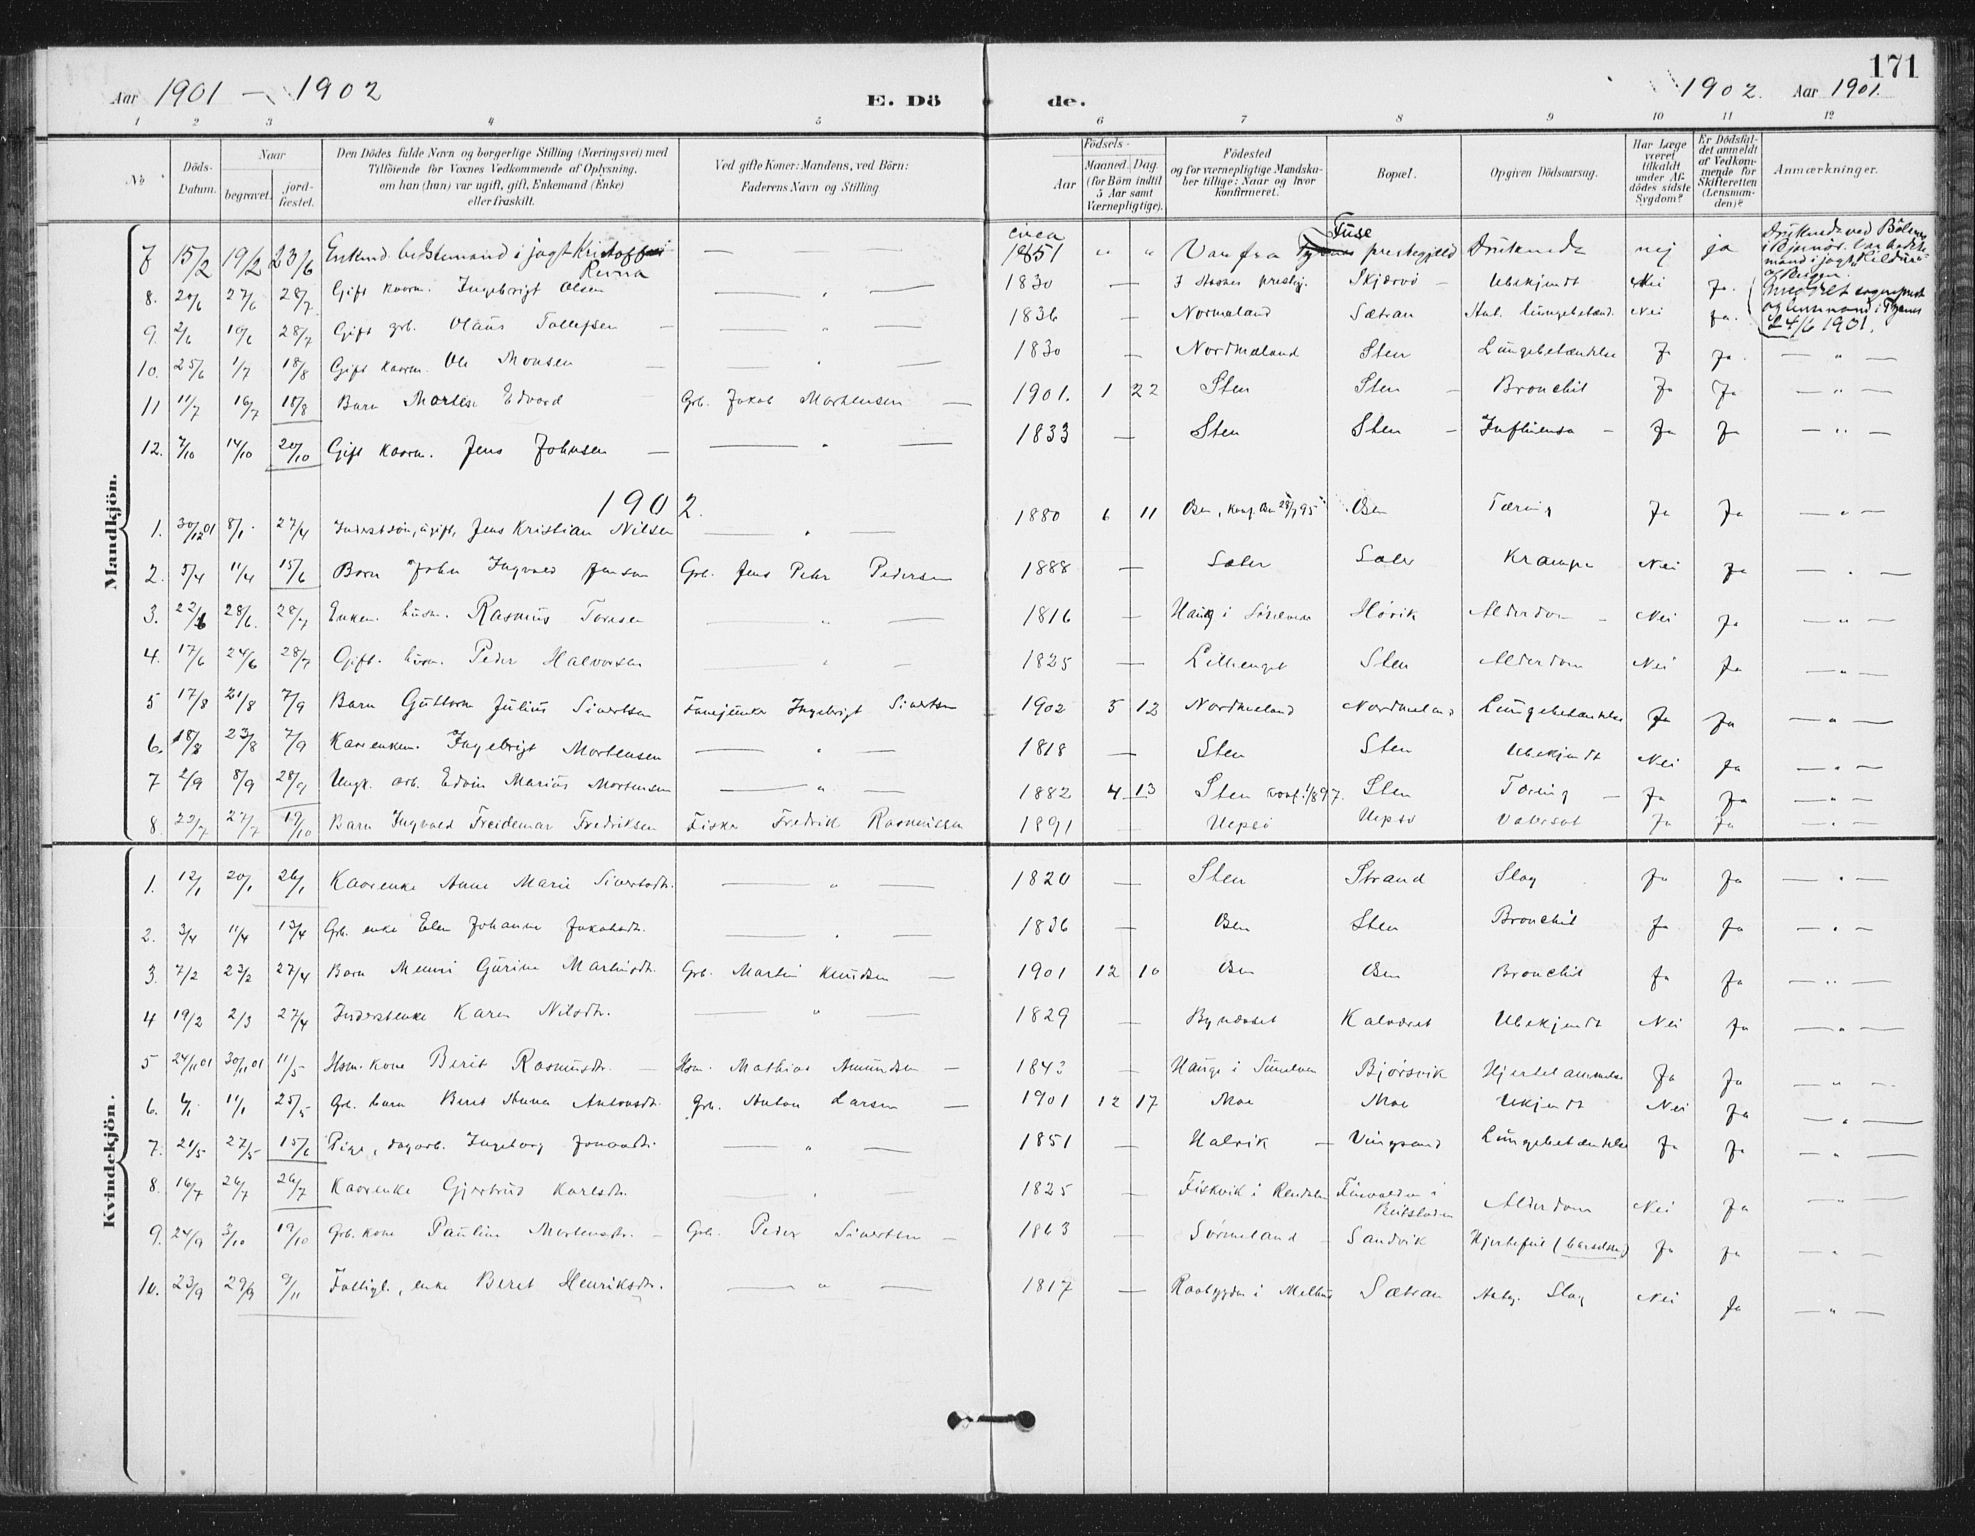 171
Aar 1901 — 1902 E. Dö de. 1902. Aar 1901.
1 2 3 4 5 6 7 8 9 10 11 12
No Döds-Datum. Naar begravet. jord-fæstet. Den Dödes fulde Navn og borgerlige Stilling (Næringsvei) med Tilföiende for Voxnes Vedkommende af Oplysning, om han (hun) var ugift, gift, Enkemand (Enke) eller fraskilt. Ved gifte Koner: Mandens, ved Börn: Faderens Navn og Stilling Födsels- Aar Maaned Dag (for Börn indtil 5 Aar samt Værnepligtige). Födested og for værnepligtige Mandska-ber tillige: Naar og hvor Konfirmeret. Bopæl. Opgiven Dödsaarsag. Har Læge været tilkaldt under Af-dödes sidste Sygdom? Er Dödsfal-det anmeldt af Vedkom-mende for Skifteretten (Lensman-den)? Anmærkninger.
Mandkjön.
7 15/2 19/2 23/6 Enkmd. bedstemand i jagt Kristoffer Revna — circa 1851 " " Var fra Fuse prestegjeld Druknede nej ja
8. 20/6 27/6 28/7 Gift kaarm. Ingebrigt Olsen — " — 1830 — Skjærvø - Ubekjendt Nei Ja.
9. 2/6 10/6 28/7 Gift grb. Olaus Tollefsen — " — 1836 — Normeland Sætran Ant. lungebetænd. Nei Ja.
24/6 1901.
10. 25/6 1/7 18/8 Gift kaarm. Ole Monsen — " — 1830 — Nordmeland Sten Lungebetændelse Ja Ja. — " —
11 11/7 16/7 18/8 Barn Morten Edvard Grb. Jakob Mortensen — 1901. 1 22 Sten Sten - Bronchit Ja Ja — " —
12. 7/10 14/10 20/10 Gift kaarm. Jens Johnsen — — " — 1833 — Sten Sten - Influensa - Ja Ja — " —
1902.
1. 30/12 01 8/1. 27/4 Inderstsøn, ugift, Jens Kristian Nilsen — " — 1880 6 11 Osen, konf. Osen Tæring Ja Ja — " —
2. 5/4 11/4 15/6 Barn John Ingvald Jensen Grb. Jens Peter Pedersen 1888 — Sæter Sæter Krampe Nei Ja — " —
3. 22/6 28/6. 28/7 Enkem. husm. Rasmus Tornsen — " — 1816 — Haug i Hörvik Alderdom - Nei Ja — " —
4. 17/6 24/6 28/7 Gift. husm. Peder Halvorsen — " — 1825 — Lillienget Sten Alderdom Nei Ja — " —
5 17/8 21/8 7/9 Barn Guttorm Julius Sivertsen Ingebrigt Sivertsen 1902 5 12 Nordmeland Nordmeland Lungebetændelse Ja Ja — " —
6. 18/8 23/8 7/9 Kaarenkem. Ingebrigt Mortensen — " — 1818 — Sten Sten Ubekjendt Nei Ja — " —
7 2/9 8/9 28/9 Ungk. arb. Edvin Marius Mortensen — " — 1882 4 13 Sten konf. 1897. Sten Tæring - Ja Ja — " —
8. 23/7 27/7 19/10 Barn Ingvald Freidemar Fredriksen Fisker Fredrik Rasmussen 1891 — Uepsø Uepsø Vatersot Ja Ja — " —
Kvindekjön.
1. 12/1 20/1 26/1 Kaarenke Anne Marie Sivertsdtr. — " — 1820 — Sten Strand Slag Ja Ja — " —
2. 3/4 11/4 13/4 Grb. enke Elen Johanna Jakobsdtr. — " — 1836 — Osen Sten Bronchit Ja Ja — " —
3. 7/2 23/2 27/4 Barn Menni Gurine Martinsdtr. Grb. Martin Knudsen — 1901 12 10 Osen Osen Bronchit Ja Ja — " —
4 19/2 2/3 27/4 Inderstenke Karen Nilsdtr. — " — 1829 — Byneset Kalværet Ubekjendt Nei Ja — " —
5 24/11 01 30/11 01 11/5 Hsm. kone Berit Rasmusdtr. — Hsm. Mathias Amundsen — 1843 — Hauge i Bjørsvik Hjertelammelse Ja Ja — " —
6. 4/1 11/1 25/5 Grb. barn Berit Anna Antonsdtr. Grb. Anton Larsen — 1901 12 17 Moe Moe Ukjendt Nei Ja — " —
7. 21/5 27/5 15/6 Pige, dagarb. Ingeborg Jonasdtr. — " — 1851 — Halvik - Vingsand Lungebetændelse Ja Ja — " —
8. 16/7 26/7 26/7 Kaarenke Gjertrud Karlsdtr. — " — 1825 — Fiskvik i Rendalen Finvolden i Beitstaden Alderdom Nei Ja — " —
9. 24/9 3/10 19/10 Grb. kone Pauline Mortensdtr. — Grb. Peder Sivertsen — 1863 — Sørmeland - Sandvik Hjertefeil (barselseng) Ja Ja — " —
10. 23/9 29/9 9/11 Fattigl., enke Beret Henriksdtr. — " — 1817 — Raabygden i Melhus Sætran Slag Nei Ja — " —